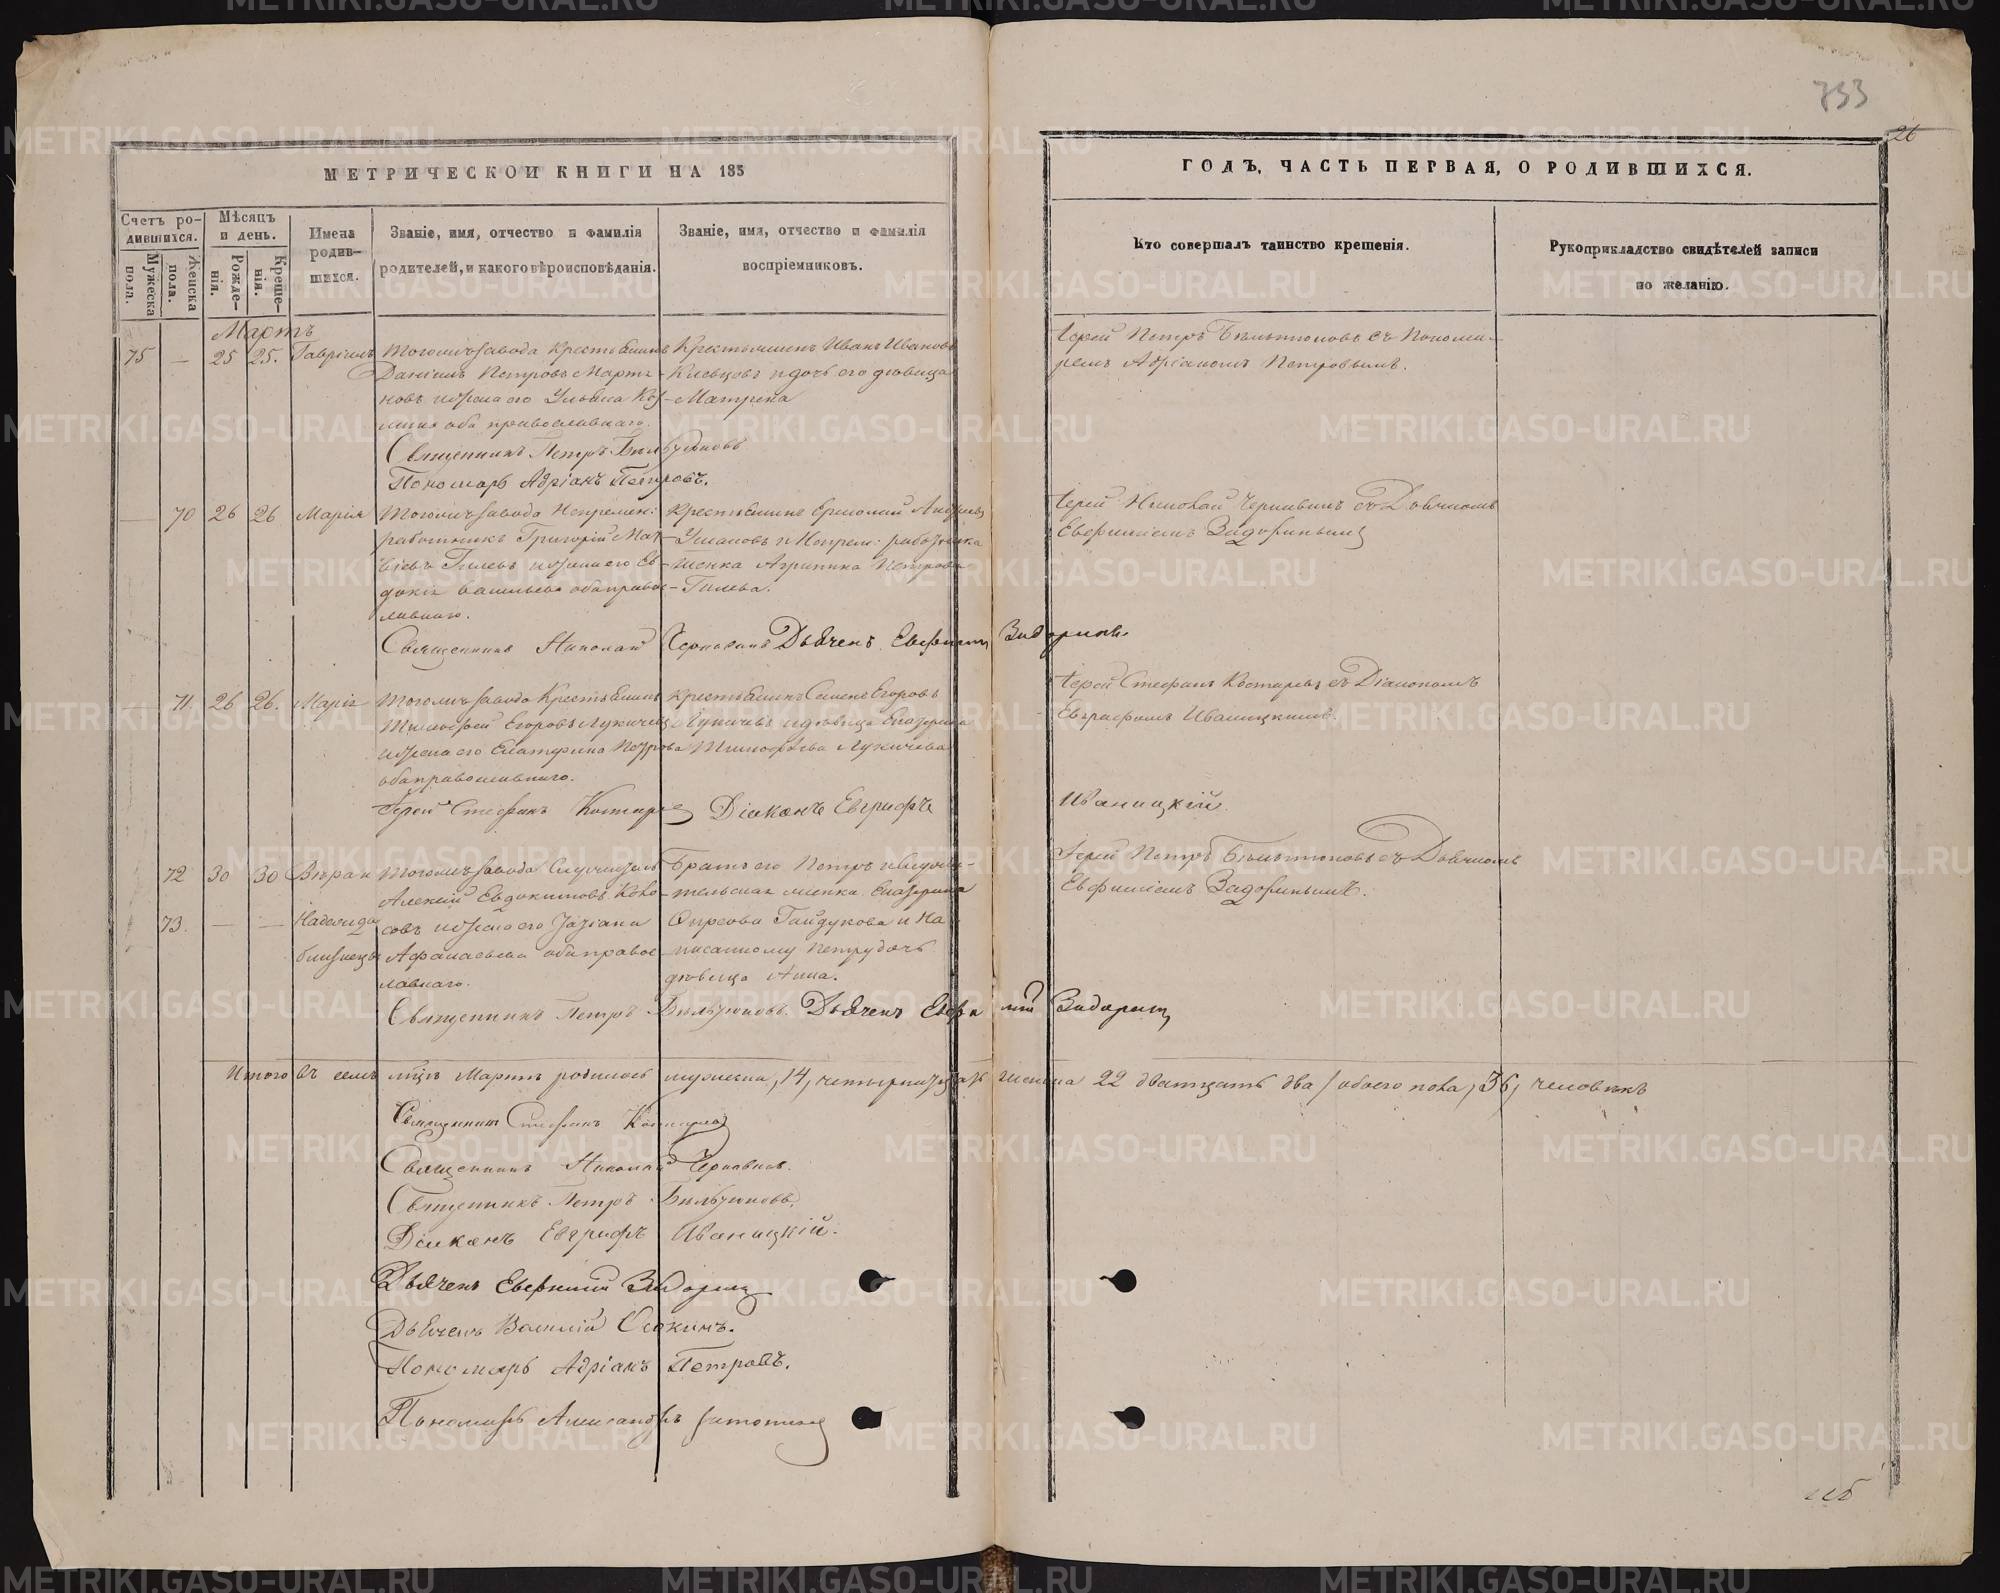 733
26
МЕТРИЧЕСКОЙ КНИГИ НА 185
ГОДЪ, ЧАСТЬ ПЕРВАЯ, О РОДИВШИХСЯ.
Счетъ родившихся.
Мужеска пола.
Женска пола.
Мѣсяцъ и день.
Рожденія.
Крещенія.
Имена родившихся.
Званіе, имя, отчество и фамилія родителей, и какого вѣроисповѣданія.
Званіе, имя, отчество и фамилія воспріемниковъ.
Кто совершалъ таинство крещенія.
Рукоприкладство свидѣтелей записи по желанію.
Мартъ
75 — 25 25. Гавріилъ
Тогожъ завода Крестьянинъ
Даніилъ Петровъ Марты-
новъ и жена его Ульяна Куз-
мина оба православнаго.
Крестьянинъ Иванъ Ивановъ
Клевцовъ и дочь его дѣвица
Матрена
Іерей Петръ с Понома-
ремъ Адріаномъ Петровымъ.
Священникъ Петръ
Пономарь Адріанъ Петровъ.
— 70 26 26 Марія
Тогожъ завода Непремен:
работникъ Григорій Мат-
вѣевъ Гилевъ и жена его Ев-
докія Васильева оба правос-
лавнаго.
Крестьянинъ Ермолай Андреевъ
Ушаковъ и Непрем: работника
женка Агрипина Петрова
Гилева.
Іерей Николай Чернавинъ съ Дьячкомъ
Евфиміемъ Задоринымъ
Священникъ Николай Чернавинъ Дьячекъ Евфимій Задоринъ.
— 71. 26 26. Марія
Тогожъ завода Крестьянинъ
Тимофей Егоровъ Лукичевъ
и жена его Екатерина Петрова
оба православнаго.
Крестьянинъ Семенъ Егоровъ
Лукичевъ и дѣвица Екатерина
Тимофѣева Лукичева
Іерей Стефанъ Костаревъ съ Діакономъ
Евграфомъ Иваницкимъ.
Іерей Стефанъ Костаревъ Діаконъ Евграфъ Иваницкій.
72 30 30 Вѣра и
73. — — Надежда
близнецы
Тогожъ завода Служитель
Алексѣй Евдокимовъ Коко-
совъ и жена его Татіана
Афанасьева оба правос-
лавнаго.
Братъ его Петръ и
женка Екатерина
Гайдукова и На-
писанному Петру дочь
дѣвица Анна.
Іерей Петръ съ Дьячкомъ
Евфиміемъ Задоринымъ.
Священникъ Петръ Дьячекъ Евфимій Задоринъ
Итого въ семъ м-цѣ Мартѣ родилось мужеска, 14, четырнадцать женска 22 дватцать два / обоего пола, 36, человѣкъ
Священникъ Стефанъ Костаревъ
Священникъ Николай Чернавинъ.
Священникъ Петръ
Діаконъ Евграфъ Иваницкій.
Дьячекъ Евфимій Задоринъ
Дьячекъ Василій
Пономарь Адріанъ Петровъ.
Пономарь Александръ
METRIKI.GASO-URAL.RU